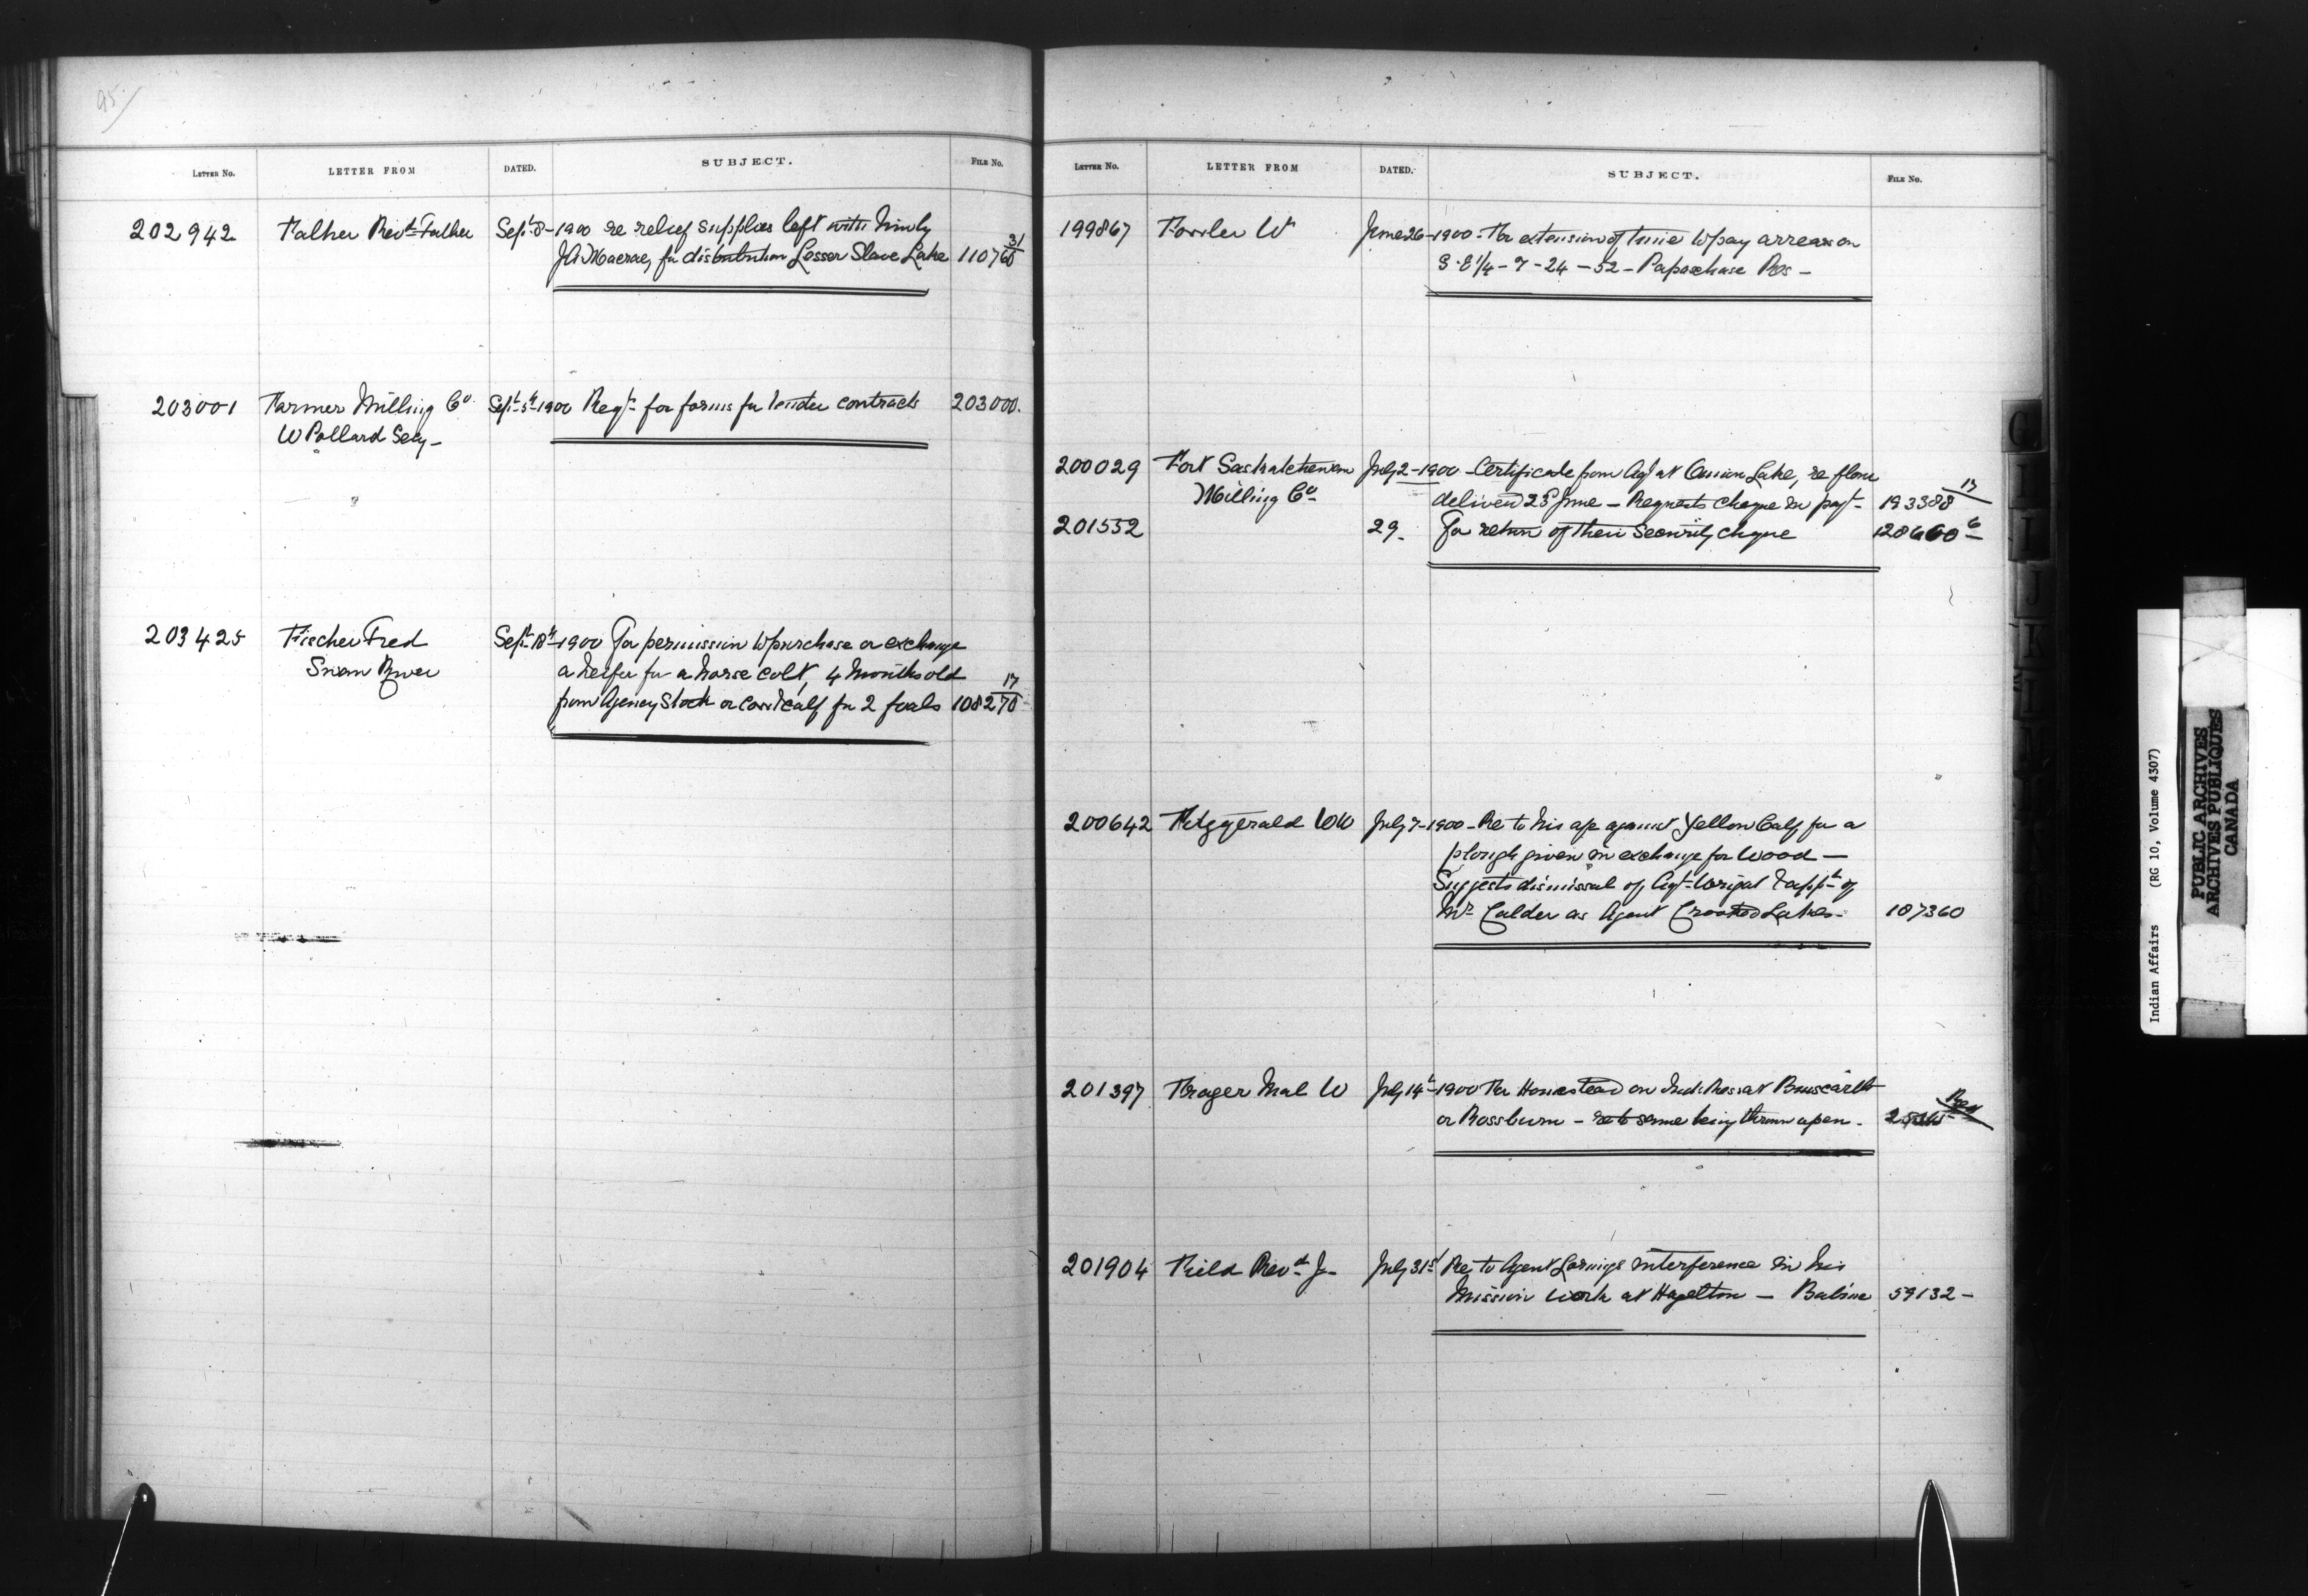 95
LETTER No. LETTER FROM DATED. SUBJECT. FILE No.
202942 Falher Revd Father Sept 8- 1900 re relief supplies left with him by
J A Macrae, for distribution Lesser Slave Lake 110760 31
203001 Farmer Milling Co Sept 5th 1900 Reqt for forms for tender contracts 203000.
W Pollard Secy -
203425 Fischer Fred Sept 18th 1900 For permission to purchase or exchange
Swan River a heifer for a horse colt, 4 months old
from Agency Stock or cow & calf for 2 foals 108270 17
LETTER No. LETTER FROM DATED. SUBJECT. FILE No.
199867 Fowler W June 26-1900- For extension of time to pay arrears on
S.E 1/4 - 7 - 24 - 52 - Papaschase Res -
200029 Fort Saskatchewan July 2-1900 - Certificate from Agt at Onion Lake, re flour
Milling Co delivered 23d June - Requests cheque in payt - 193388 17
201552 29. For return of their Security cheque 128660 6
200642 Fitzgerald WW July 7-1900- Re to his a/c against Yellow Calf for a
plough given in exchange for wood -
Suggests dismissal of Agt Wright & appt of
Mr Calder as Agent Crooked Lakes - 187360
201397 Frager Mal W July 14th-1900 For Homestead on Ind. Res at
or Rossburn - re to same being thrown open -
201904 Field Revd J- July 31st Re to Agent Lorings interference in his
Mission work at Hazelton - Babine 59132 -
G
I
J
K
L
Indian Affairs (RG 10, Volume 4307)
PUBLIC ARCHIVES
ARCHIVES PUBLIQUES
CANADA